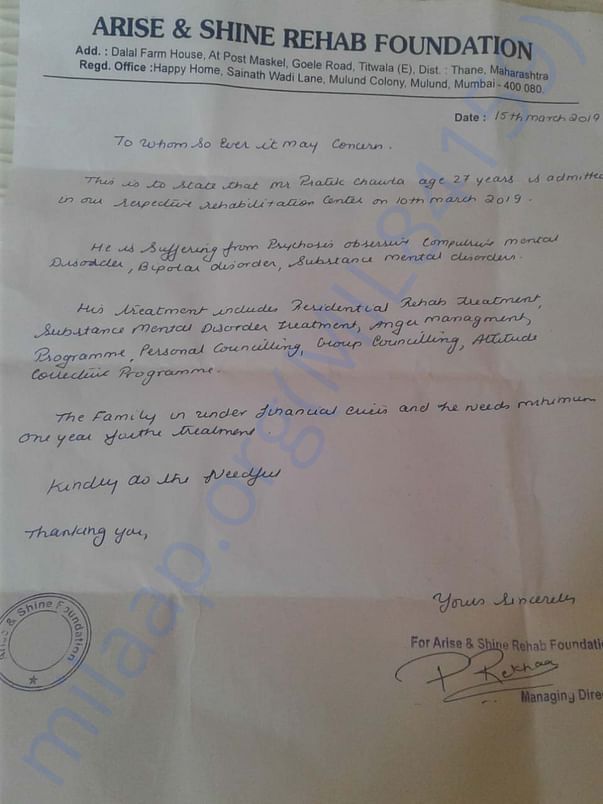 ARISE & SHINE REHAB FOUNDATION
Add. : Dalal Farm House, At Post Maskel, Goele Road, Titwala (E), Dist. : Thane, Maharashtra
Regd. Office :Happy Home, Sainath Wadi Lane, Mulund Colony, Mulund, Mumbai - 400 080.
Date : 15th march 2019
To whom So Ever it may Concern.
This is to state that Mr Pratik Chawla age 27 years is admitted
in our respective rehabilitation Center on 10th march 2019.
He is Suffering from Psychosis obsessive Compulsive mental
Disorder, Bipolar disorder, Substance mental disorders.
His treatment includes Residential Rehab treatment,
Substance Mental Disorder treatment, Anger managment,
Programme, Personal Councilling, Group Councilling, Attitude
Collective Programme.
The Family in under financial crisis and he needs minimum
one year for the treatment.
Kindly do the Needful
Thanking you,
Yours Sincerely
For Arise & Shine Rehab Foundatio
P Rekhaa
Managing Dire
Arise & Shine Foundation
milaap.org(MIL84159)